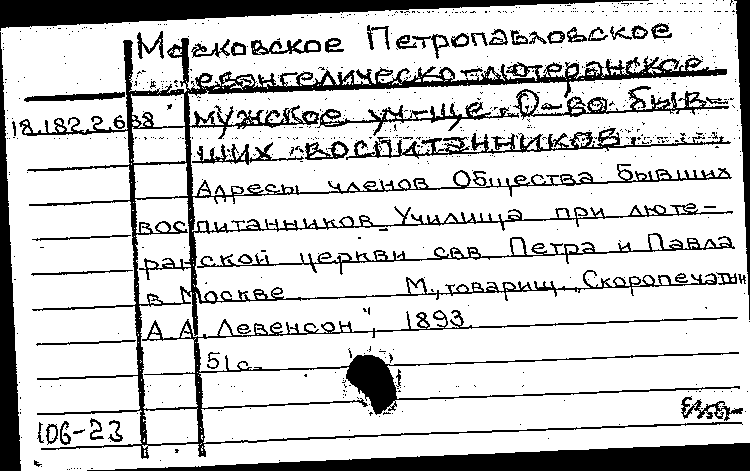 Московское Петропавловское
евангелическо-лютеранское
18.182.2.638 мужское уч-ще. О-во быв-
ших воспитанников.
Адресы членов Общества бывших
воспитанников Училища при люте-
ранской церкви свв. Петра и Павла
в Москве М., товарищ. „Скоропечатни
А.А. Левенсон", 1893.
51 с.
106-23